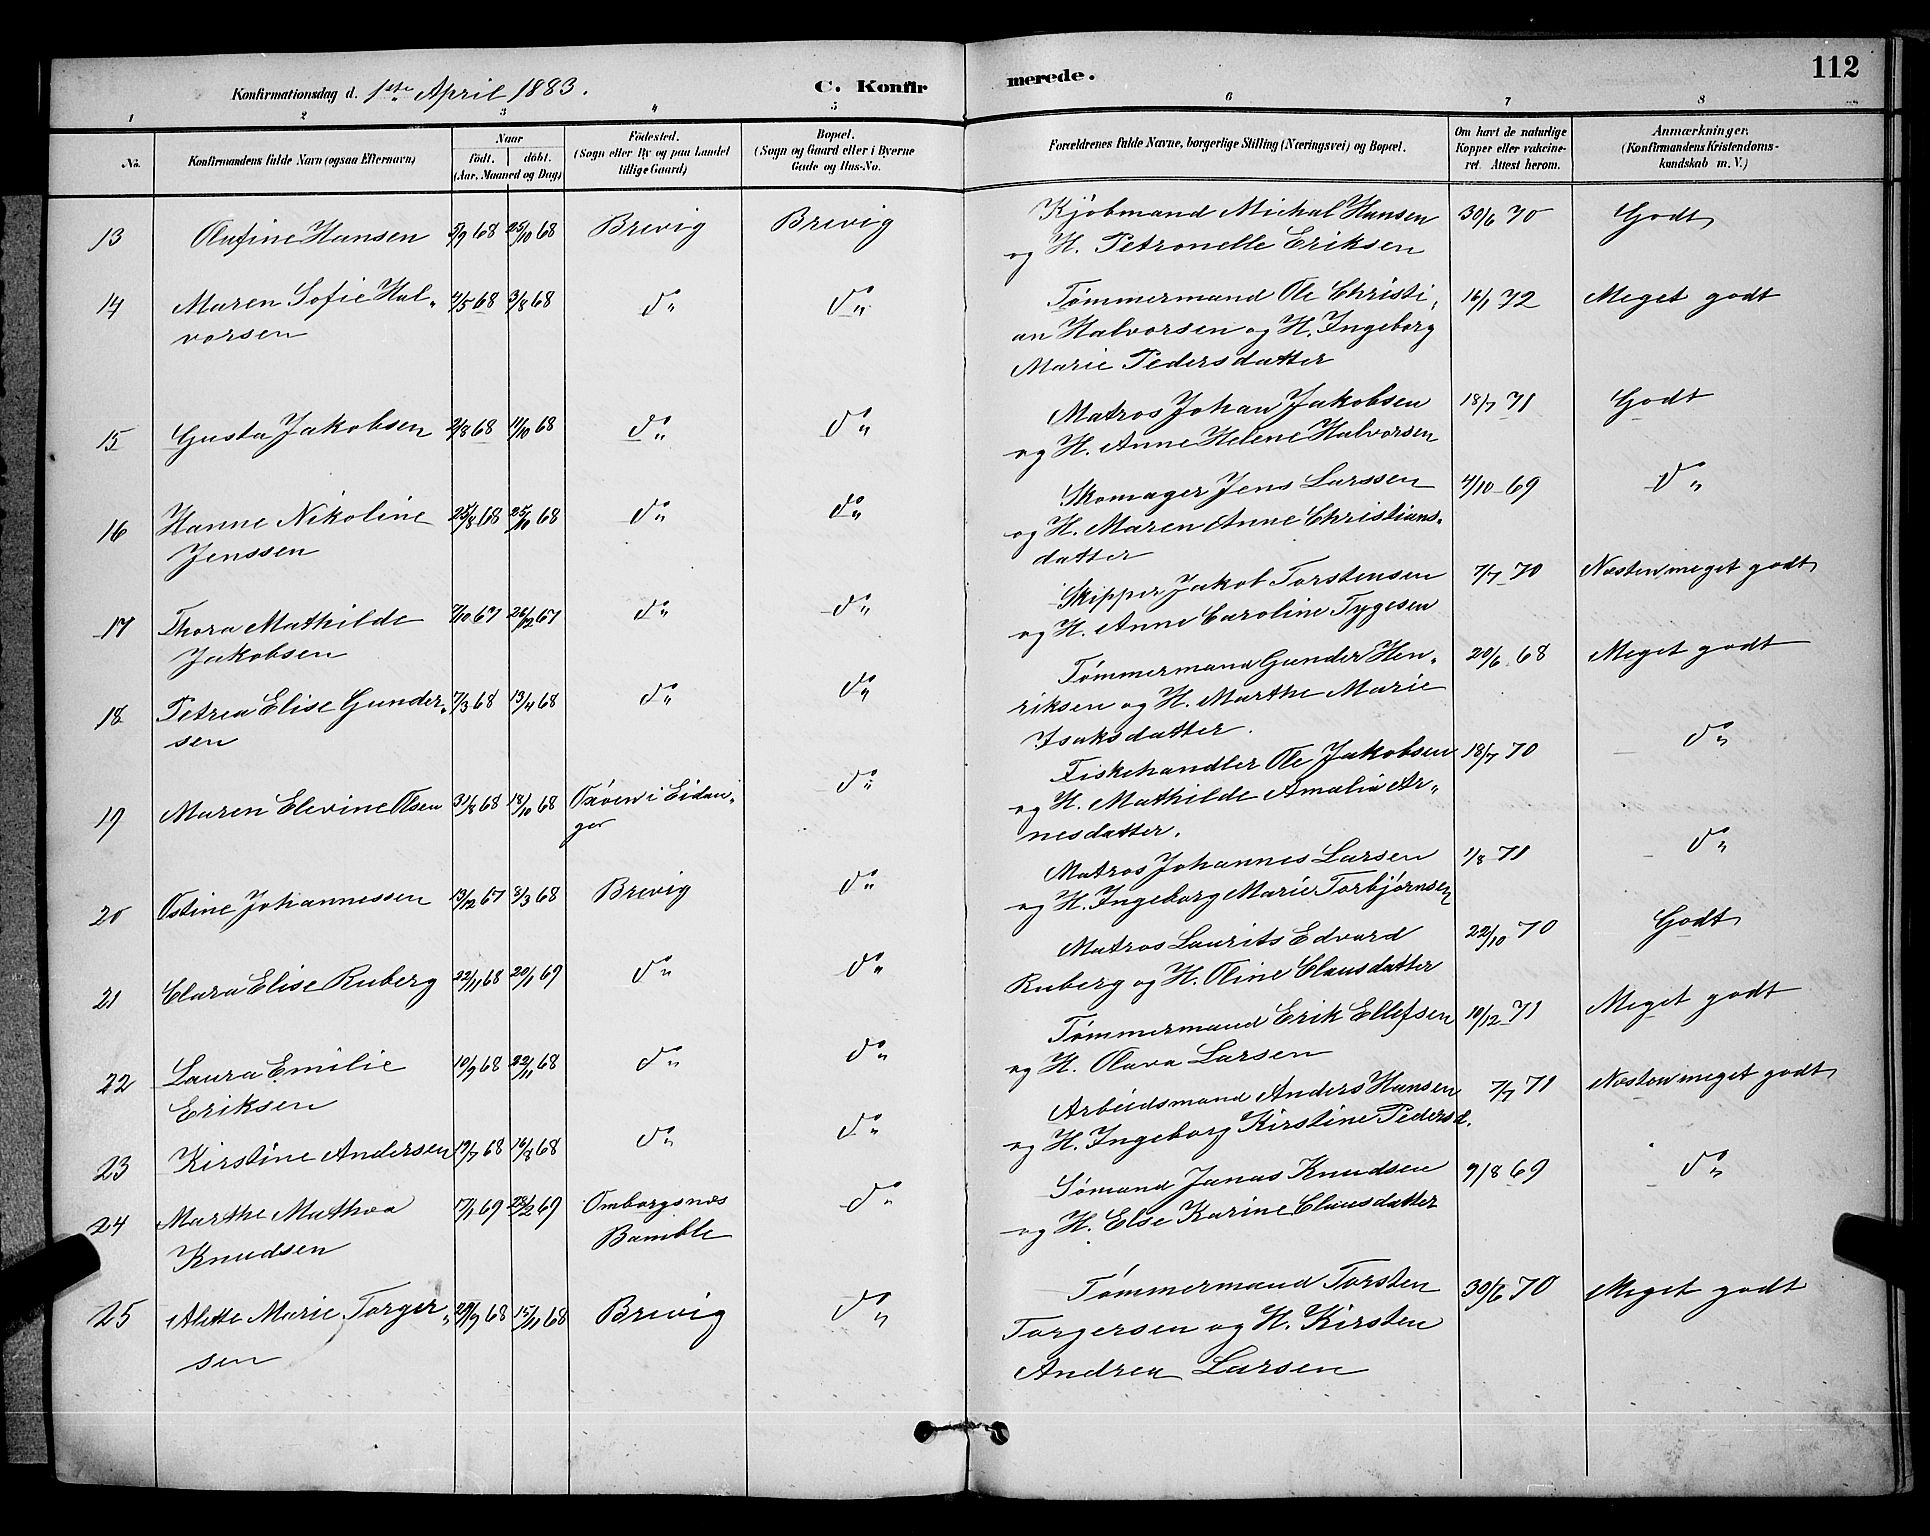 112
Konfirmationsdag d. 1ste April 1883. C. Konfir merede.
1 2 3 4 5 6 7 8
No. Konfirmandens fulde Navn (ogsaa Efternavn) Naar født. døbt. (Aar, Maaned og Dag) Fødested. (Sogn eller By og paa Landet tillige Gaard) Bopæl. (Sogn og Gaard eller i Byerne Gade og Hus-No. Forældrenes fulde Navne, borgerlige Stilling (Næringsvei) og Bopæl. Om havt de naturlige Kopper eller vakcineret. Attest herom. Anmærkninger. (Konfirmandens Kristendomskundskab m. V.)
13 Olufine Hansen 5/9 68 25/10 68 Brevig Brevig Kjøbmand Michal Hansen 30/6 70 Godt
og H. Petronelle Eriksen
14 Maren Sofie Hal- 4/5 68 3/8 68 do do Tømmermand Ole Christi- 16/1 72 Meget godt
vorsen an Halvorsen og H. Ingeborg
Marie Pedersdatter
15 Gusta Jakobsen 2/8 68 11/10 68 do do Matros Johan Jakobsen 18/7 71 Godt
og H. Anne Helene Halvorsen
16 Hanne Nikoline 25/8 68 25/10 68 do do Skomager Jens Larssen 4/10 69 do
Jenssen og H. Maren Anne Christians-
datter
17 Thora Mathilde 7/10 67 26/12 67 do do Skipper Jakob Torstensen 7/7 70 Næsten meget godt
Jakobsen og H. Anne Caroline Tygesen
18 Petrea Elise Gunder- 7/3 68 13/4 68 do do Tømmermand Gunder Hen- 20/6 68 Meget godt
sen riksen og H. Marthe Marie
Isaksdatter.
19 Maren Elevine Olsen 31/8 68 18/10 68 i Eidan- do Fiskehandler Ole Jakobsen 18/7 70 do
ger og H. Mathilde Amalia Ar-
nesdatter.
20 Ostine Johannessen 13/12 67 8/3 68 Brevig do Matros Johannes Larsen 1/8 71 do
og H. Ingeborg Marie Torbjørnsen
21 Clara Elise Ruberg 22/11 68 20/1 69 do do Matros Laurits Edvard 22/10 70 Godt
Ruberg og H. Oline Clausdatter
22 Laura Emilie 10/9 68 22/11 68 do do Tømmermand Erik Ellefsen 10/12 71 Meget godt
Eriksen og H. Olava Larsen
23 Kirstine Andersen 12/7 68 16/8 68 do do Arbeidsmand Anders Hansen 7/7 71 Næsten meget godt
og H. Ingeborg Kirstine Pedersd.
24 Marthe Mathea 17/1 69 28/2 69 Omborgsnæs do Sømand Jonas Knudsen 9/8 69 do
Knudsen Bamble og H. Else Karine Clausdatter
25 Alette Marie Torger- 29/9 68 15/11 68 Brevig do Tømmermand Torsten 30/6 70 Meget godt
sen Torgersen og H. Kirsten
Andrea Larsen